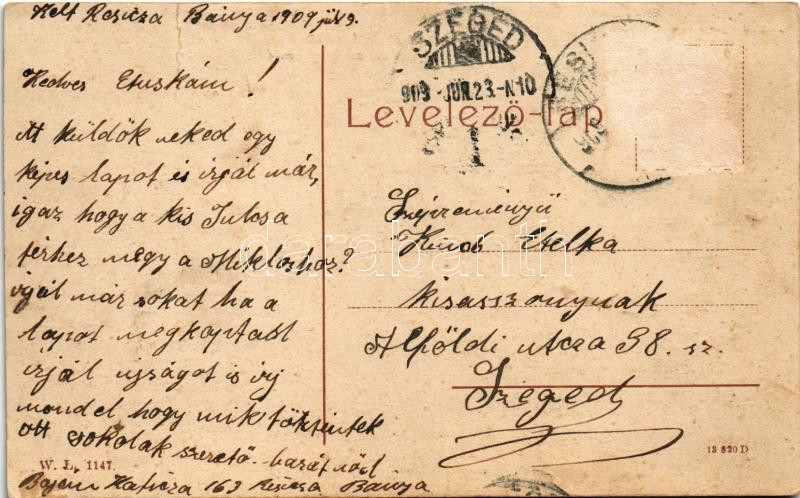 Kelt Resicza Bánya 1909 júl 9.
Kedves Etuskám!
Itt küldök neked egy
képes lapot és irjál már,
igaz hogy a kis Julcsa
férhez megy a Mikloshoz?
irjál már sokat ha a
lapot megkaptad
irjál ujságot is irj
mondel hogy mik történtek
ott sokolak szerető barátnőd
Katicza 169 Resicza Bánya
W. L. 1147.
SZEGED
909 JUN.23.-N10
Levelező-lap
Etelka
kisasszonynak
Alföldi utcza 38. sz.
Szeged
13 820 D
darabanth